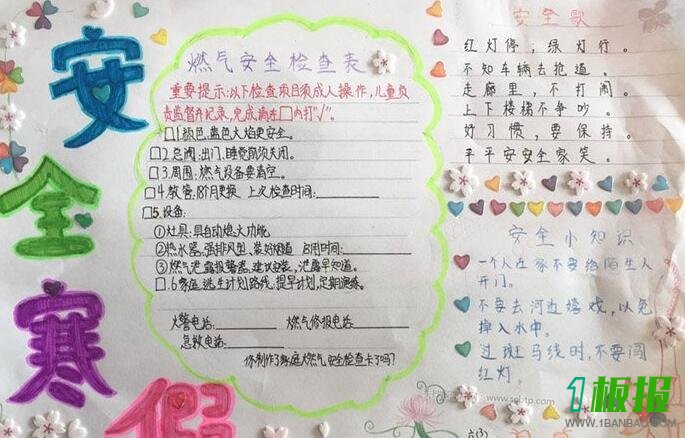 安
全
寒
假
燃气安全检查表
重要提示:以下检查项目须成人操作,儿童负
责监督并记录,完成请在囗内打"√"。
囗1.颜色:蓝色火焰更安全。
囗2.总阀:出门、睡觉前须关闭。
囗3.周围:燃气设备要清空。
囗4.软管:18个月更换 上次检查时间:
囗5.设备:
①灶具:具自动熄火功能
②热水器:强排风型、装好烟道 启用时间:
③燃气泄露报警器:建议安装,泄露早知道。
囗.6家庭逃生计划路线,提早计划,定期演练。
火警电话: 燃气修报电话:
急救电话:
你制作了家庭燃气安全检查卡了吗?
安全歌
红灯停,绿灯行。
不知车辆去抢道。
走廊里,不打闹。
上下楼梯不争吵。
好习惯,要保持。
平平安安全家笑。
安全小知识
一个人在家不要给陌生人
开门。
不要去河边嬉戏,以免
掉入水中。
过斑马线时,不要闯
红灯。
1板报
WWW.1BANBAO.COM